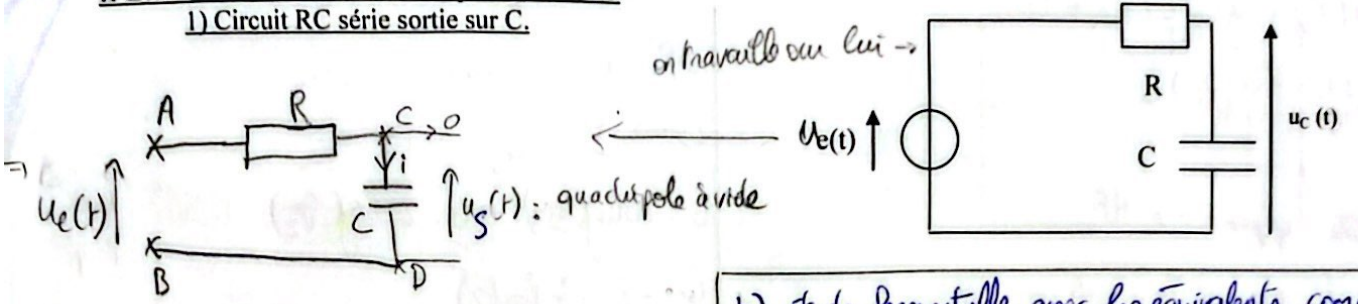 1) Circuit RC série sortie sur C.
on travaille sur lui →
A
R
C
O
ue(t)
i
C
us(t) : quadripole à vide
B
D
Ue(t)
R
C
uc (t)